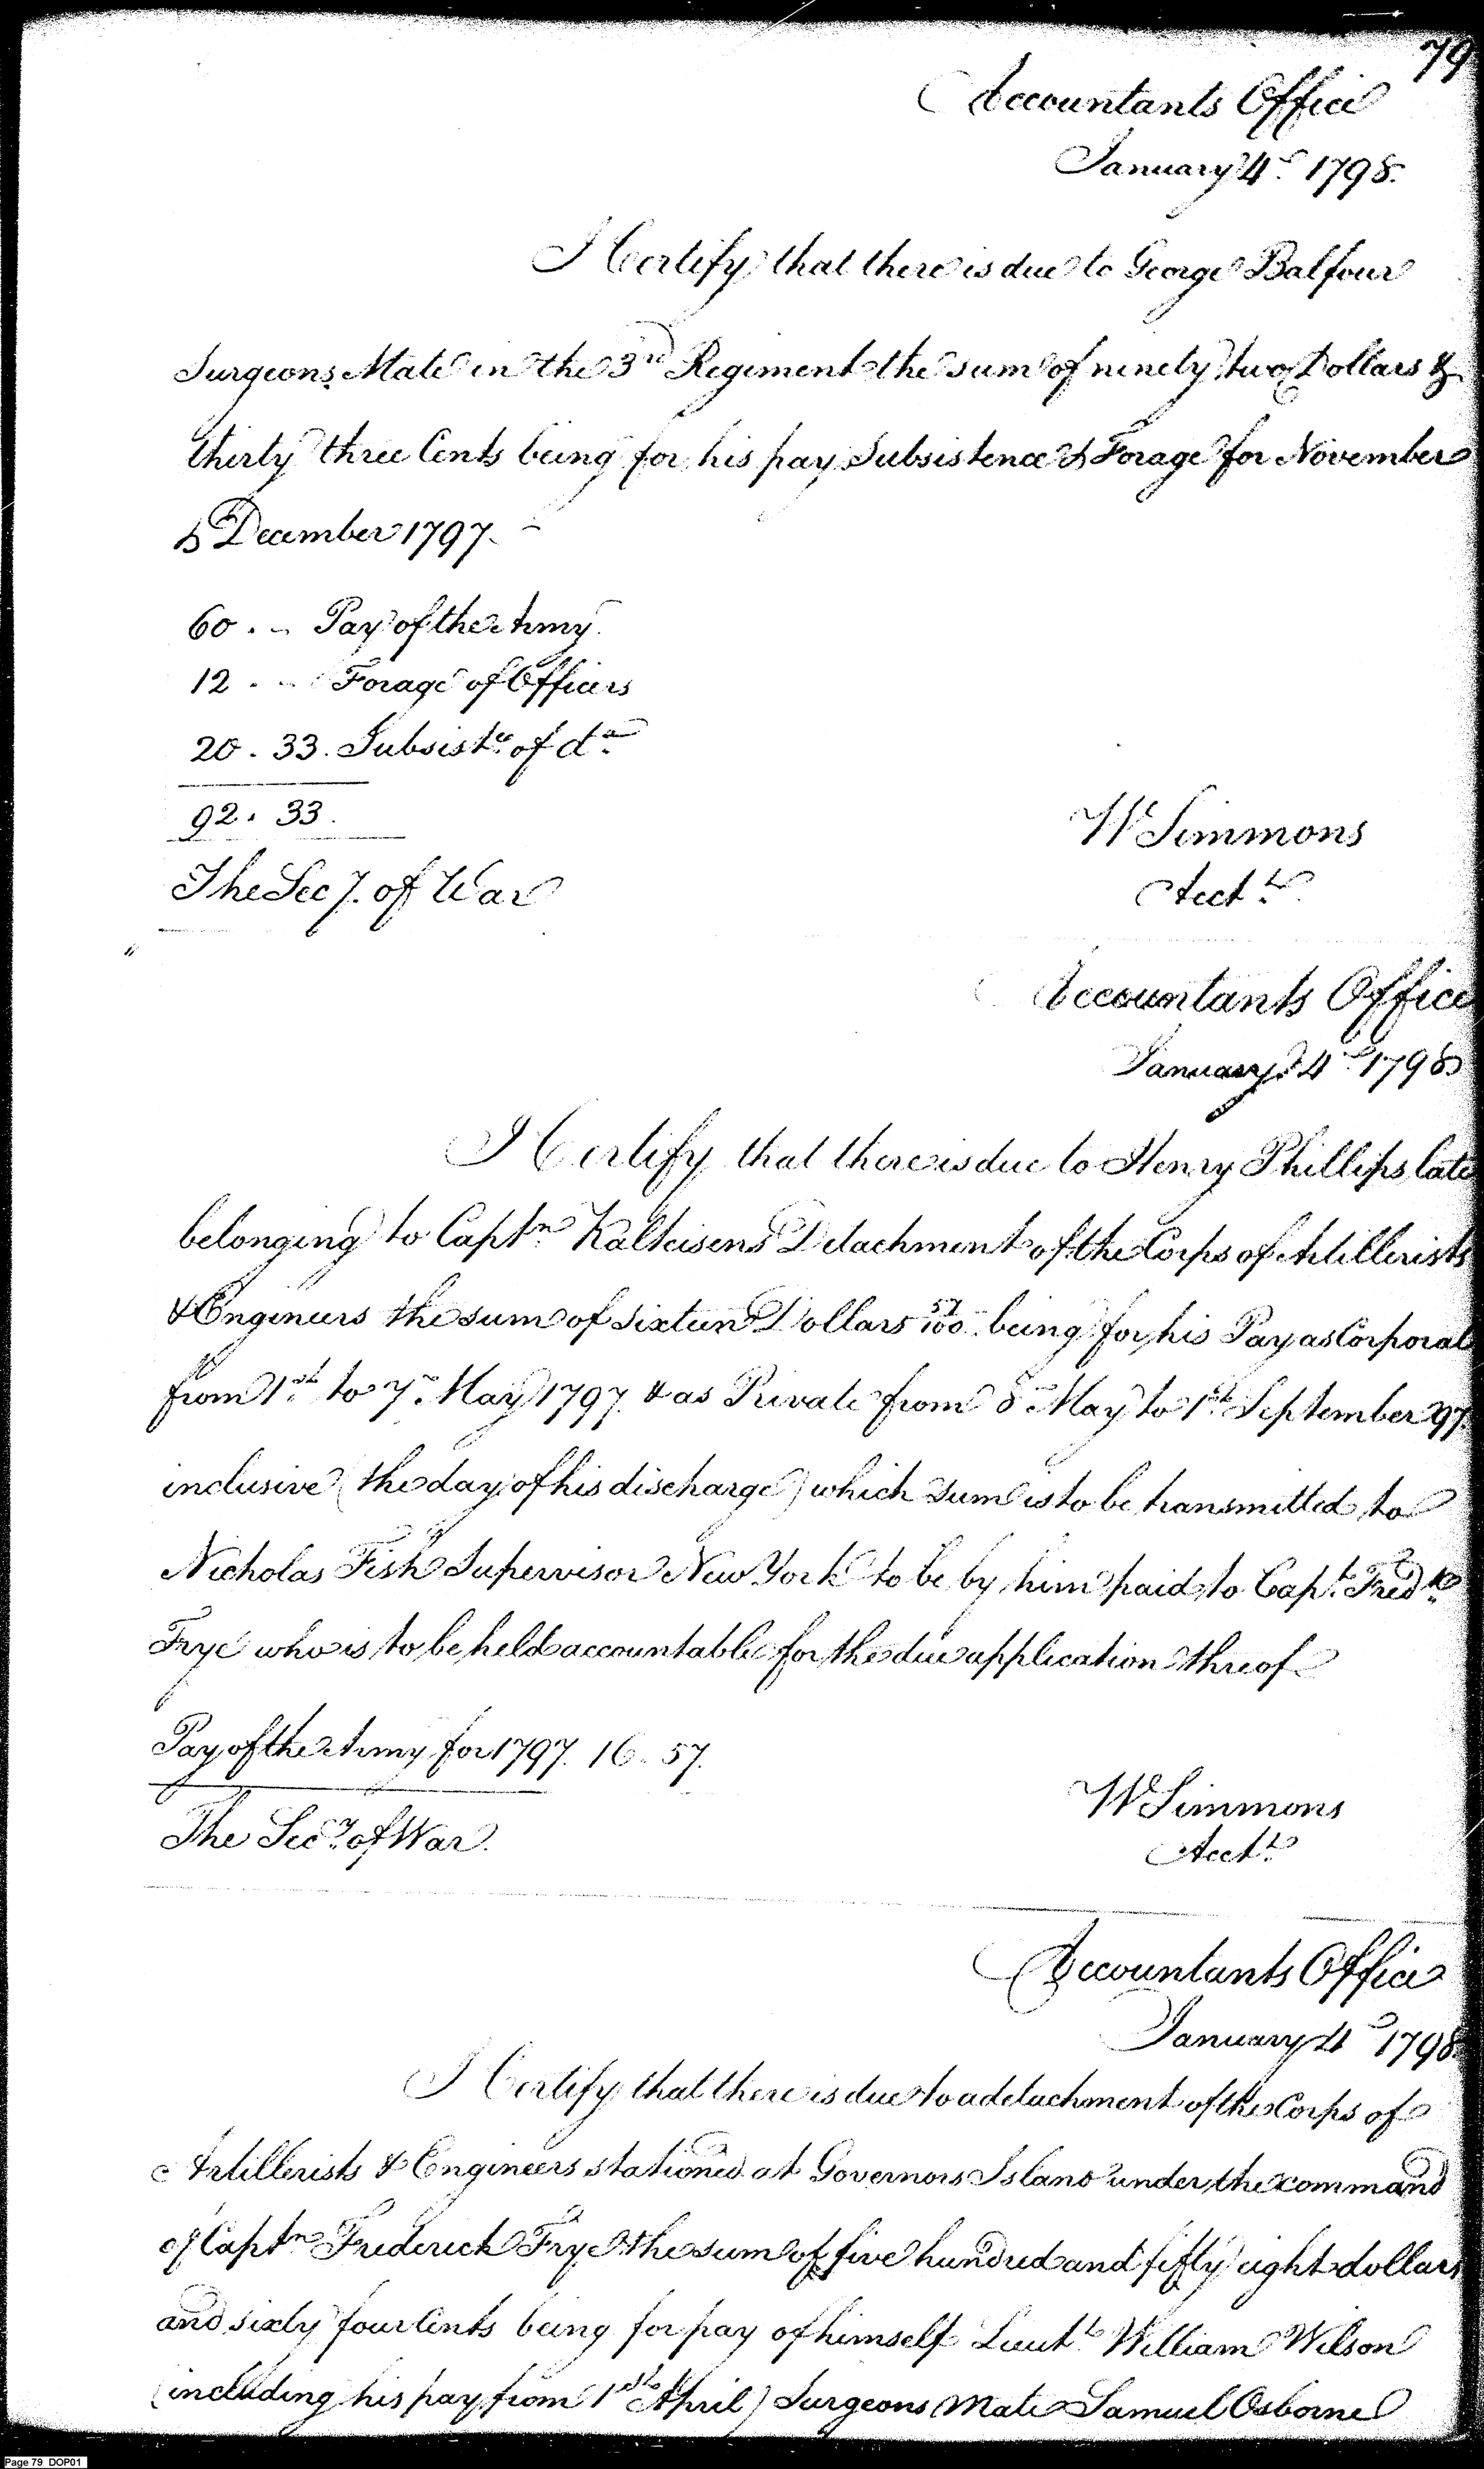 79
Accountants Office
January 4th 1798.
I Certify that there is due to George Balfour
Surgeons Mate in the 3rd Regiment the sum of ninety two Dollars &
thirty three Cents being for his pay Subsistence & Forage for November
& December 1797.
60 . - Pay of the Army.
12 . - Forage of Officers
20 . 33. Subsistce of do
92. 33.
W Simmons
Acctt
The Secy. of War
Accountants Office
January 4th 1798
I Certify that there is due to Henry Phillips late
belonging to Captn Kalteisens Detachment of the Corps of Artillerists
& Engineers the sum of sixteen Dollars 57/100 being for his Pay as Corporal
from 1st to 7th May 1797 & as Private from 8th May to 1st September 97
inclusive (the day of his discharge) which sum is to be transmitted to
Nicholas Fish Supervisor New York to be by him paid to Capt. Fredk
Frye who is to be held accountable for the due application threof
Pay of the Army for 1797. 16. 57.
W Simmons
Acctt
The Secy. of War.
Accountants Office
January 4th 1798
I Certify that there is due to a detachment of the Corps of
Artillerists & Engineers stationed at Governors Island under the command
of Captn Frederick Frye the sum of five hundred and fifty eight dollars
and sixty four Cents being for pay of himself Lieutt William Wilson
(including his pay from 1st April) Surgeons Mate Samuel Osborne
Page 79 DOP01